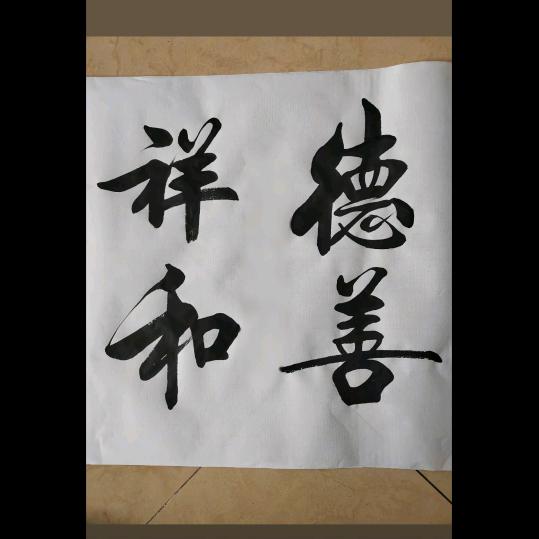 德善
祥和